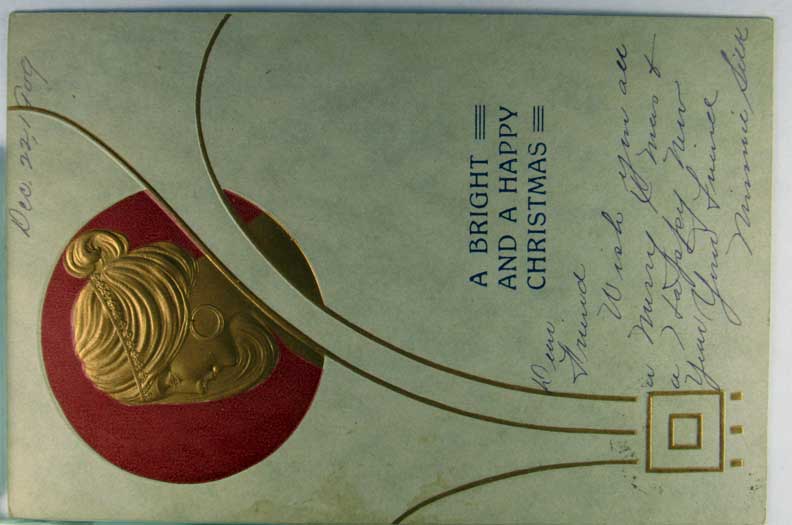 Dec. 22, 1909
A BRIGHT
AND A HAPPY
CHRISTMAS
Dear
Friend
Wish you all
a Merry Xmas &
a Happy New
Year Your Friend
Minnie Sill